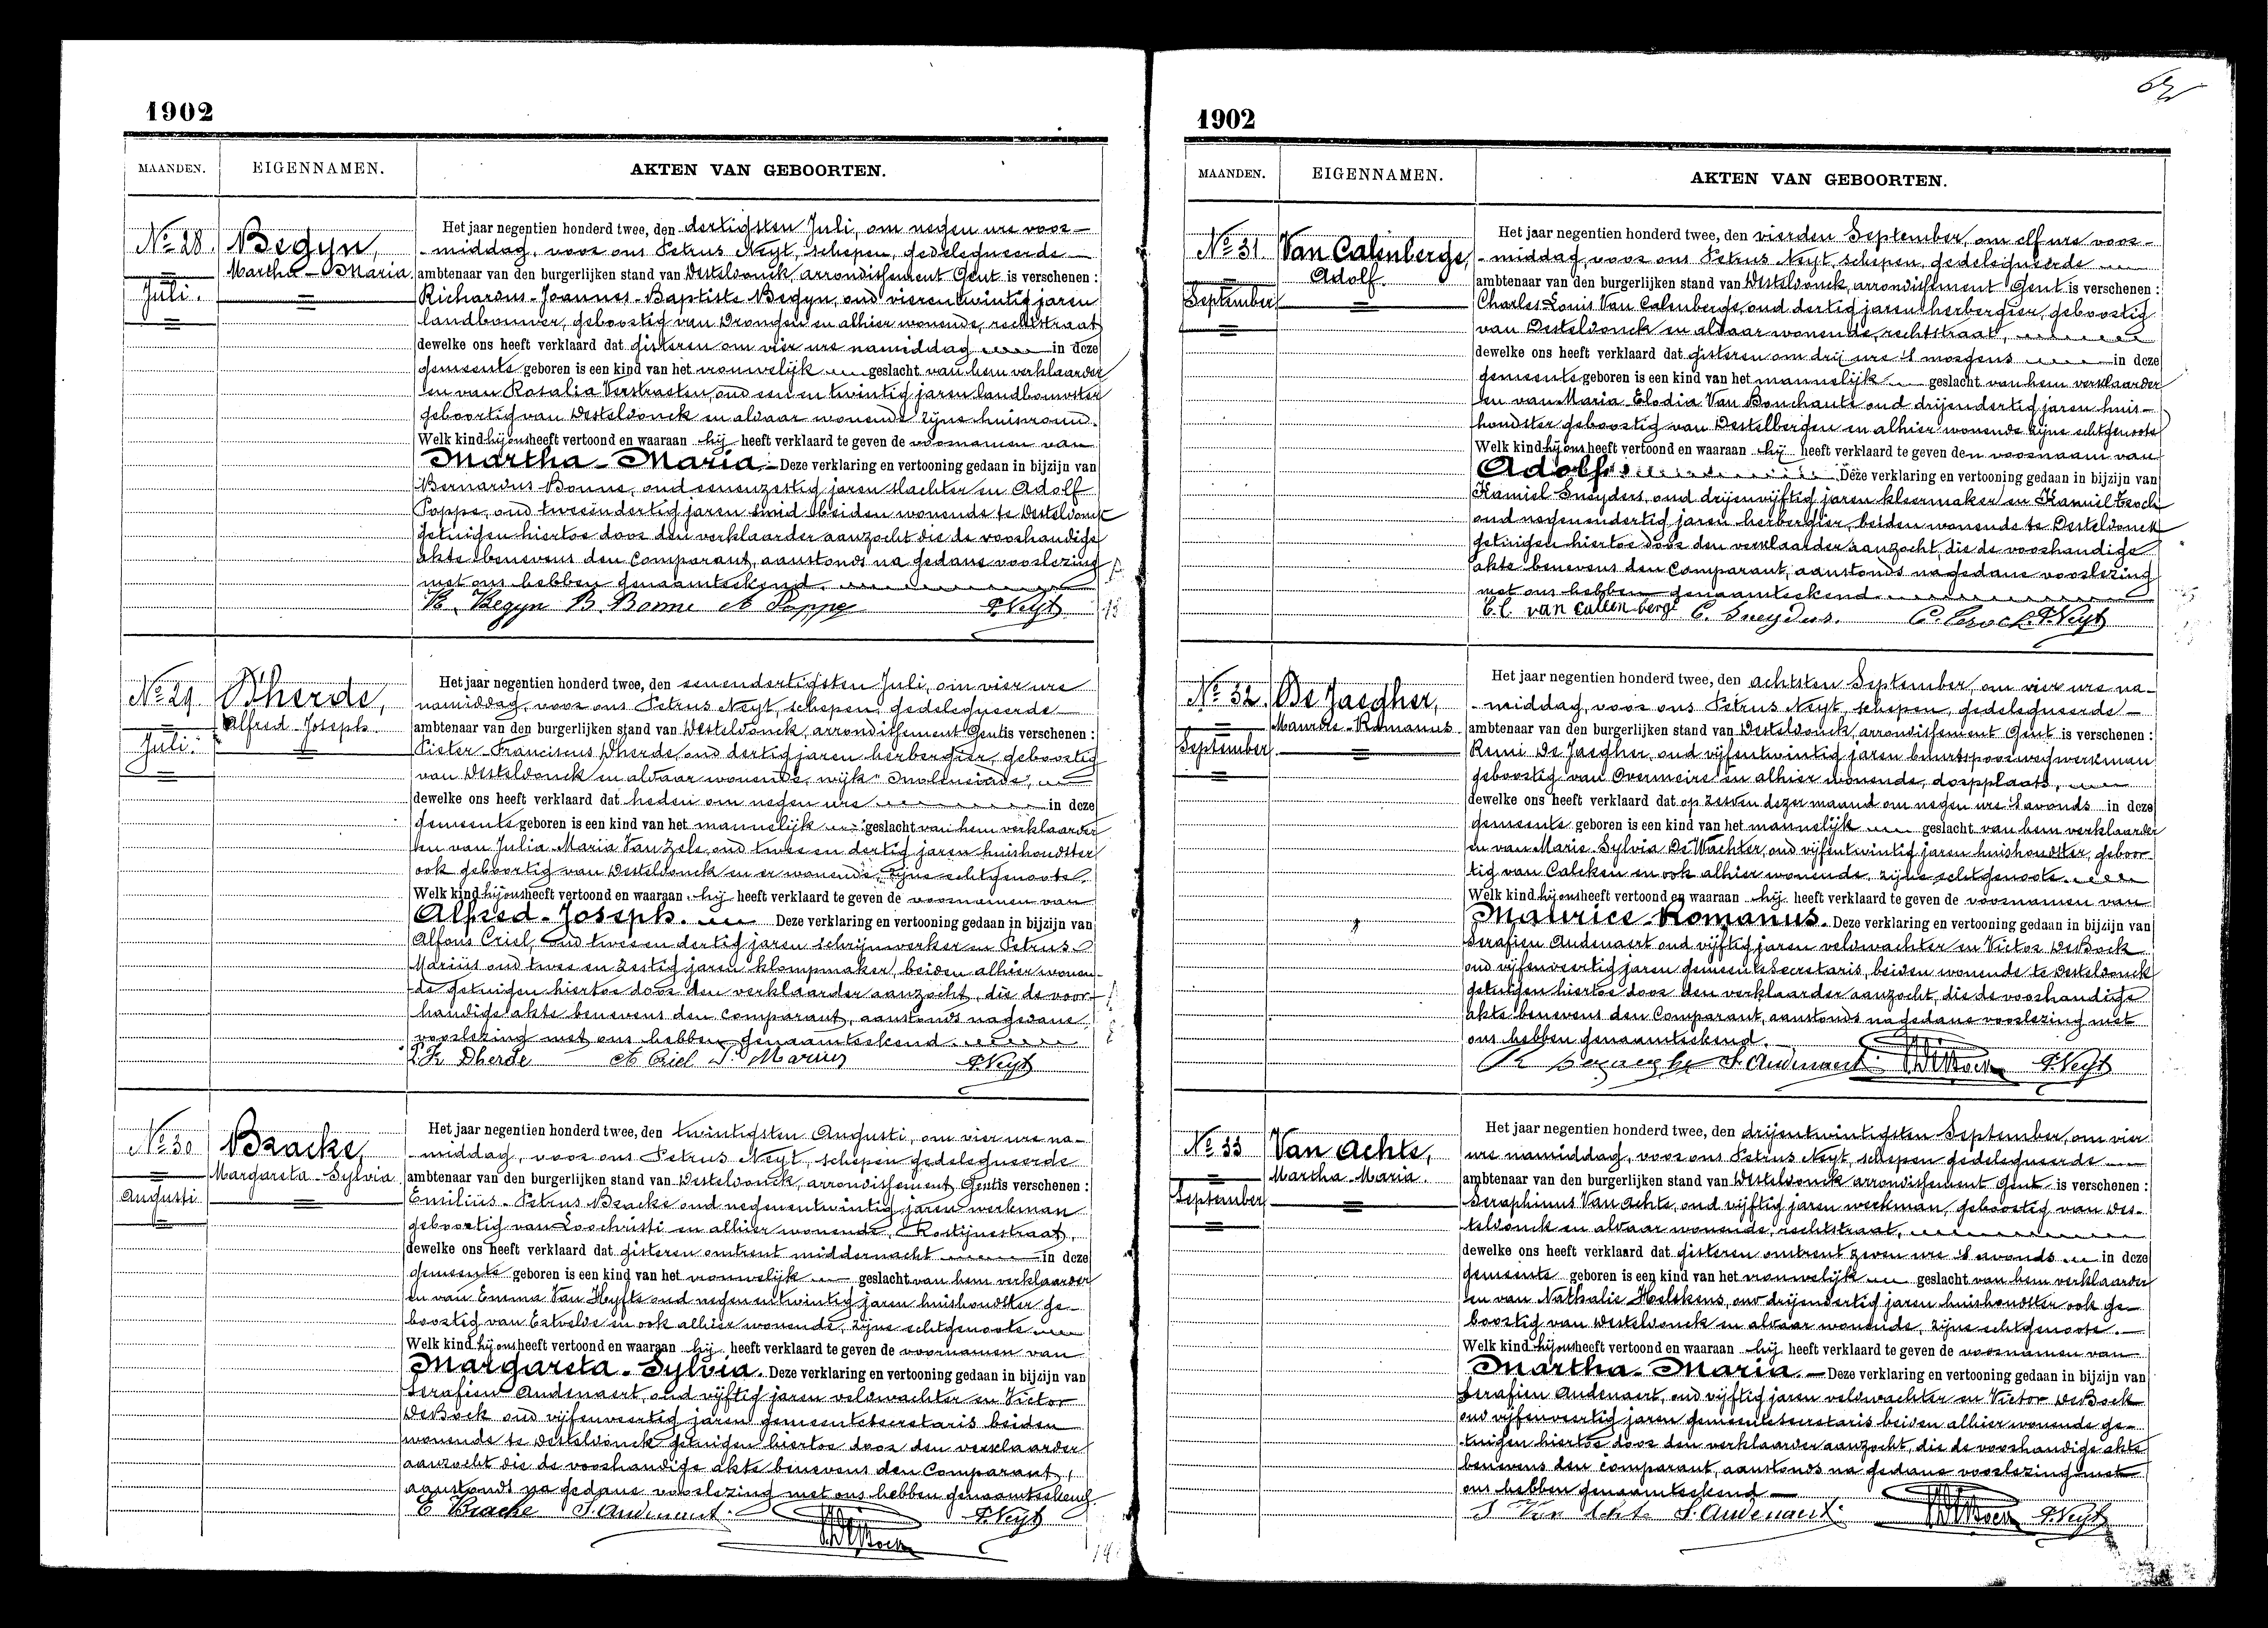 1902
MAANDEN. EIGENNAMEN. AKTEN VAN GEBOORTEN.
No 28. Begyn,
Martha-Maria.
Juli.
Het jaar negentien honderd twee, den dertigsten Juli, om negen ure voor-
middag, voor ons Petrus Neyt, schepen, gedelegueerde
ambtenaar van den burgerlijken stand van Desteldonck, arrondissement Gent is verschenen :
Richardus-Joannes-Baptiste Begyn, oud vierentwintig jaren
landbouwer, geboortig van Drongen en alhier wonende, rechtstraat
dewelke ons heeft verklaard dat gisteren om vier ure namiddag in deze
gemeente geboren is een kind van het vrouwelijk geslacht van hem verklaarder
en van Rosalia Verstraeten, oud een en twintig jaren landbouwster
geboortig van Desteldonck en aldaar wonende zijne huisvrouw.
Welk kind hij ons heeft vertoond en waaraan hij heeft verklaard te geven de voornamen van
Martha-Maria. Deze verklaring en vertooning gedaan in bijzijn van
Bernardus Bonne, oud eenenzestig jaren slachter en Adolf
Poppe, oud tweeendertig jaren smid beiden wonende te Desteldonck
getuigen hiertoe door den verklaarder aanzocht die de voorhandige
akte benevens den Comparant, aanstonds na gedane voorlezing
met ons hebben genaamteekend.
R. Begyn B. Bonne A Poppe P. Neyt
No 29 D'herde,
Alfred-Joseph.
Juli.
Het jaar negentien honderd twee, den eenendertigsten Juli, om vier ure
namiddag, voor ons Petrus Neyt, schepen, gedelegueerde
ambtenaar van den burgerlijken stand van Desteldonck, arrondissement Gent is verschenen :
Pieter Franciscus Dherde, oud dertig jaren herbergier, geboortig
van Desteldonck en aldaar wonende, wijk
dewelke ons heeft verklaard dat heden om negen ure in deze
gemeente geboren is een kind van het mannelijk geslacht van hem verklaarder
en van Julia Maria Van Zele, oud twee en dertig jaren huishoudster
ook geboortig van Desteldonck en er wonende, zijne echtgenoote.
Welk kind hij ons heeft vertoond en waaraan hij heeft verklaard te geven de voornamen van
Alfred-Joseph. Deze verklaring en vertooning gedaan in bijzijn van
Alfons Criel, oud twee en dertig jaren schrijnwerker en Petrus
Mariüs oud twee en zestig jaren klompmaker, beiden alhier wonen-
de getuigen hiertoe door den verklaarder aanzocht, die de voor-
handige akte benevens den Comparant, aanstonds na gedane
voorlezing met ons hebben genaamteekend.
P. Fr Dherde A Criel P. Marius P. Neyt
No 30 Bracke,
Margareta-Sylvia
Augusti
Het jaar negentien honderd twee, den twintigsten Augusti, om vier ure na-
middag, voor ons Petrus Neyt, schepen gedelegueerde
ambtenaar van den burgerlijken stand van Desteldonck, arrondissement Gent is verschenen :
Emilius-Petrus Bracke oud negenentwintig jaren werkman
geboortig van Loochristi en alhier wonende, Rostijnestraat,
dewelke ons heeft verklaard dat gisteren omtrent middernacht in deze
gemeente geboren is een kind van het vrouwelijk geslacht van hem verklaarder
en van Emma Van Hyfte oud negenentwintig jaren huishoudster ge-
boortig van Ertvelde en ook alhier wonende, zijne echtgenoote
Welk kind hij ons heeft vertoond en waaraan hij heeft verklaard te geven de voornamen van
Margareta-Sylvia. Deze verklaring en vertooning gedaan in bijzijn van
Serafien Audenaert, oud vijftig jaren veldwachter en Victor
DeBock oud vijfenveertig jaren gemeentesecretaris beiden
wonende te Desteldonck getuigen hiertoe door den verklaarder
aanzocht die de voorhandige akte benevens den Comparant,
aanstonds na gedane voorlezing met ons hebben genaamteekend.
E Bracke S. Audenaert. P. Neyt
V DeBock
1902
MAANDEN. EIGENNAMEN. AKTEN VAN GEBOORTEN.
No 31 Van Calenberge,
Adolf.
September
Het jaar negentien honderd twee, den vierden September, om elf ure voor-
middag, voor ons Petrus Neyt, schepen, gedelegueerde
ambtenaar van den burgerlijken stand van Desteldonck, arrondissement Gent is verschenen :
Charles Louis Van Calenberge, oud dertig jaren herbergier, geboortig
van Desteldonck en aldaar wonende, rechtstraat,
dewelke ons heeft verklaard dat gisteren om drij ure 's morgens in deze
gemeente geboren is een kind van het mannelijk geslacht van hem verklaarder
en van Maria Elodia Van Bouchaute oud drijendertig jaren huis-
houdster geboortig van Destelbergen en alhier wonende zijne echtgenoote
Welk kind hij ons heeft vertoond en waaraan hij heeft verklaard te geven den voornaam van
Adolf. Deze verklaring en vertooning gedaan in bijzijn van
Kamiel Sneyders, oud drijenvijftig jaren kleermaker en Kamiel
oud negenendertig jaren herbergier, beiden wonende te Desteldonck
getuigen hiertoe door den verklaarder aanzocht, die de voorhandige
akte benevens den Comparant, aanstonds na gedane voorlezing
met ons hebben genaamteekend
C. L. van Calenberge C. Sneyders. P. Neyt
No 32. De Jaegher,
Maurice-Romanus.
September
Het jaar negentien honderd twee, den achtsten September, om vier ure na-
middag, voor ons Petrus Neyt, schepen, gedelegueerde
ambtenaar van den burgerlijken stand van Desteldonck, arrondissement Gent is verschenen :
Remi De Jaegher, oud vijfentwintig jaren buurtspoorwegwerkman
geboortig van Overmeire en alhier wonende, dorpplaats,
dewelke ons heeft verklaard dat op zeven dezer maand om negen ure 's avonds in deze
gemeente geboren is een kind van het mannelijk geslacht van hem verklaarder
en van Marie-Sylvia De Wachter, oud vijfentwintig jaren huishoudster, geboor-
tig van Calcken en ook alhier wonende, zijne echtgenoote.
Welk kind hij ons heeft vertoond en waaraan hij heeft verklaard te geven de voornamen van
Maurice-Romanus. Deze verklaring en vertooning gedaan in bijzijn van
Serafien Audenaert oud vijftig jaren veldwachter en Victor DeBock
oud vijfenveertig jaren gemeentesecretaris, beiden wonende te Desteldonck
getuigen hiertoe door den verklaarder aanzocht, die de voorhandige
akte benevens den Comparant, aanstonds na gedane voorlezing met
ons hebben genaamteekend.
R Dejaegher S. Audenaert. V DeBock P. Neyt
No 33 Van Achte,
Martha-Maria.
September
Het jaar negentien honderd twee, den drijentwintigsten September, om vier
ure namiddag, voor ons Petrus Neyt, schepen gedelegueerde
ambtenaar van den burgerlijken stand van Desteldonck arrondissement Gent is verschenen :
Seraphinus Van Achte, oud vijftig jaren werkman, geboortig van Des-
teldonck en aldaar wonende, rechtstraat,
dewelke ons heeft verklaard dat gisteren omtrent zeven ure 's avonds in deze
gemeente geboren is een kind van het vrouwelijk geslacht van hem verklaarder
en van Nathalie Helskens, oud drijendertig jaren huishoudster ook ge-
boortig van Desteldonck en aldaar wonende, zijne echtgenoote.
Welk kind hij ons heeft vertoond en waaraan hij heeft verklaard te geven de voornamen van
Martha-Maria. Deze verklaring en vertooning gedaan in bijzijn van
Serafien Audenaert, oud vijftig jaren veldwachter en Victor DeBock
oud vijfenveertig jaren gemeentesecretaris beiden alhier wonende ge-
tuigen hiertoe door den verklaarder aanzocht, die de voorhandige akte
benevens den comparant, aanstonds na gedane voorlezing met
ons hebben genaamteekend
S Van Achte S. Audenaert. V DeBock P. Neyt